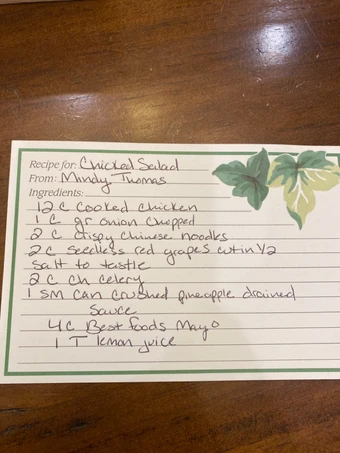 Recipe for: Chicked Salad
From: Mindy Thomas
Ingredients:
12 C Cooked Chicken
1 C gr onion Chopped
2 C Crispy Chinese noodles
2 C Seedless red grapes cut in 1/2
Salt to tastle
2 C Ch celery
1 sm can crushed pineapple drained
Sauce
4 C Best foods Mayo
1 T lemon juice